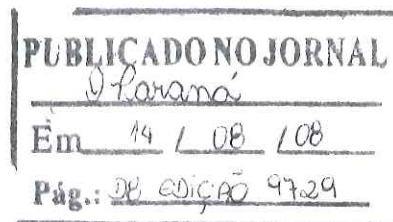 PUBLICADO NO JORNAL
O Paraná
Em 14 / 08 / 08
Pág.: 08 EDIÇÃO 9729